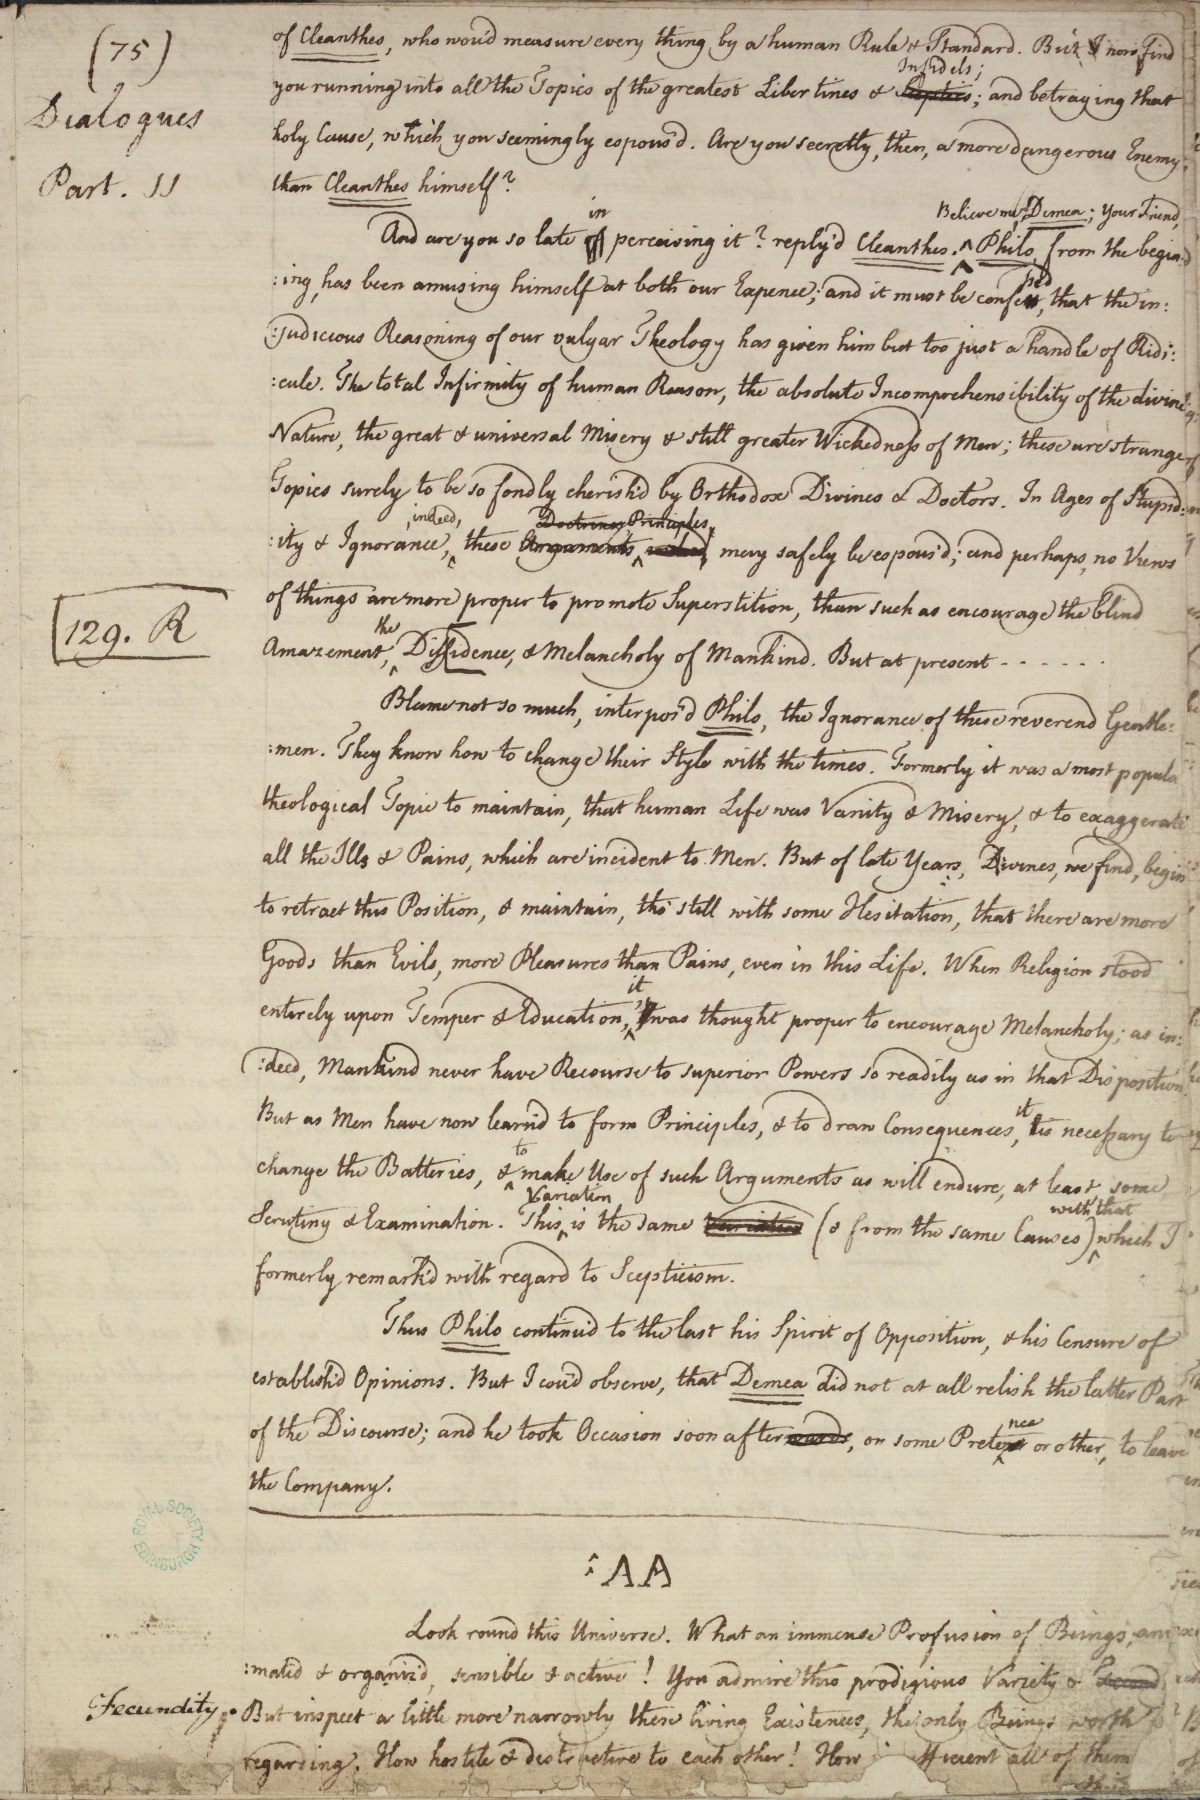 (75)
Dialogues
Part. 11
of Cleanthes, who wou'd measure every thing by a human Rule & Standard. But I now find
Infidels;
you running into all the Topics of the greatest Libertines & Sceptics; and betraying that
holy Cause, which you seemingly espous'd. Are you secretly, then, a more dangerous Enemy
than Cleanthes himself?
in Believe me, Demea; your Friend,
And are you so late perceiving it? reply'd Cleanthes. ^ Philo, from the begin
:ing, has been amusing himself at both our Expence; and it must be confest, that the in:
:judicious Reasoning of our vulgar Theology has given him but too just a handle of Ridi:
:cule. The total Infirmity of human Reason, the absolute Incomprehensibility of the divine
Nature, the great & universal Misery & still greater Wickedness of Men; these are strange
Topics surely to be so fondly cherish'd by Orthodox Divines & Doctors. In Ages of Stupid:
indeed, Doctrines, Principles,
:ity & Ignorance, ^ these Arguments ^ indeed, may safely be espous'd; and perhaps, no Views
of things are more proper to promote Superstition, than such as encourage the blind
129. R
the
Amazement, ^ Diffidence, & Melancholy of Mankind. But at present - - - - - -
Blame not so much, interpos'd Philo, the Ignorance of these reverend Gentle:
:men. They know how to change their Style with the times. Formerly it was a most popula
theological Topic to maintain, that human Life was Vanity & Misery, & to exaggerate
all the Ills & Pains, which are incident to Men. But of late Years, Divines, we find, begin
to retract this Position, & maintain, tho' still with some Hesitation, that there are more
Goods than Evils, more Pleasures than Pains, even in this Life. When Religion stood
it
entirely upon Temper & Education, ^ was thought proper to encourage Melancholy; as in:
:deed, Mankind never have Recourse to superior Powers so readily as in that Disposition
it
But as Men have now learn'd to form Principles, & to draw Consequences, tis necessary to
to
change the Batteries, & ^ make Use of such Arguments as will endure, at least some
Variation with that
Scrutiny & Examination. This ^ is the same Variation (& from the same Causes) ^ which I
formerly remark'd with regard to Scepticism.
Thus Philo continu'd to the last his Spirit of Opposition, & his Censure of
establish'd Opinions. But I cou'd observe, that Demea did not at all relish the latter Part
nce
of the Discourse; and he took Occasion soon afterwards, on some Pretext or other, to leave
the Company.
ROYAL SOCIETY EDINBURGH
AA
Look round this Universe. What an immense Profusion of Beings, ani
:mated & organiz'd, sensible & active! You admire this prodigious Variety &
Fecundity.
But inspect a little more narrowly these living Existences, the only Beings worth
regarding. How hostile & destructive to each other! How all of them